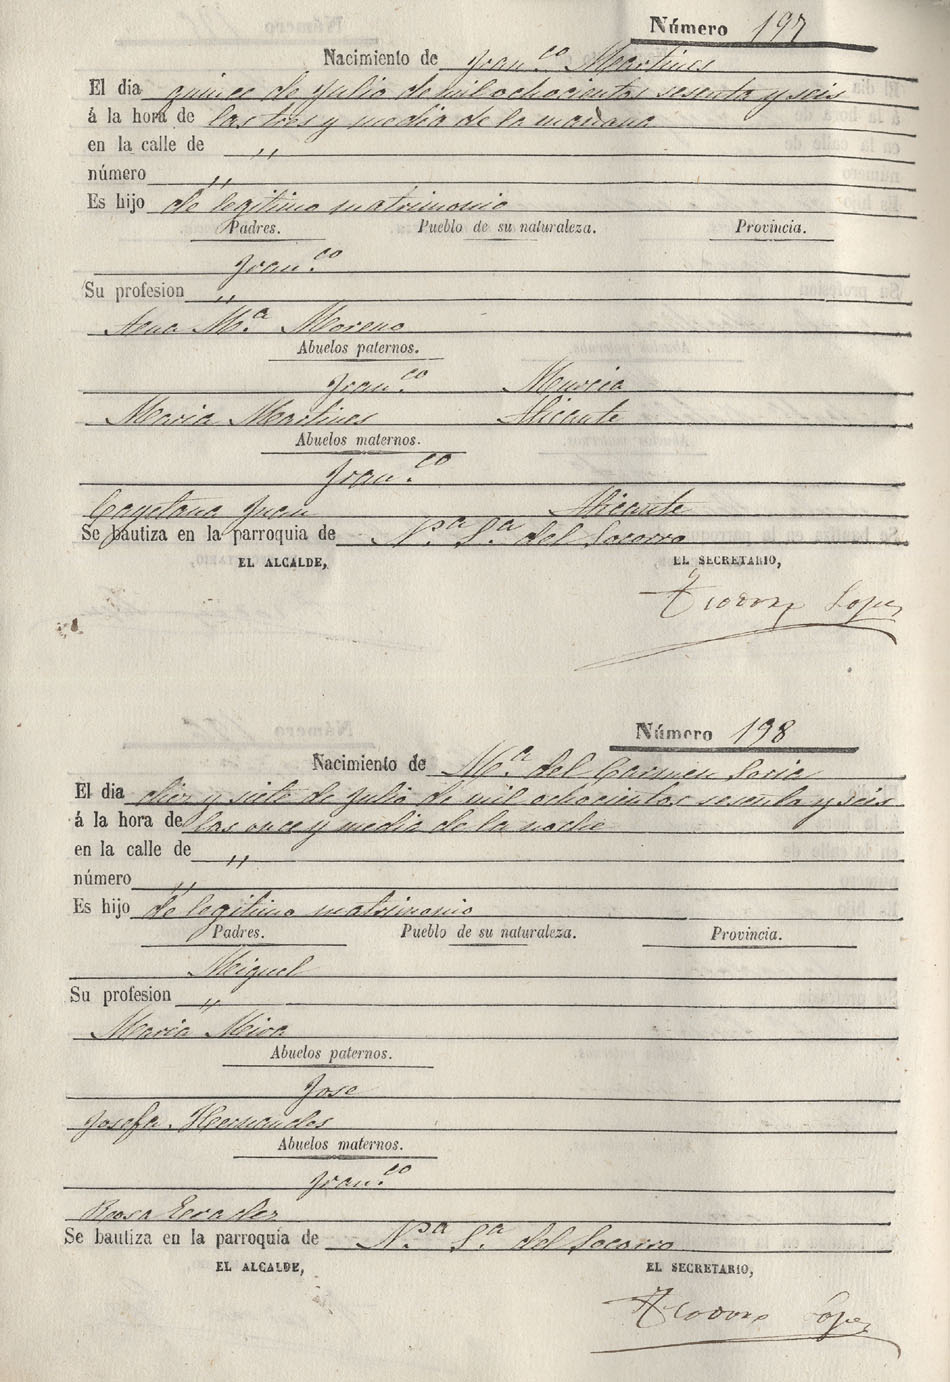 Número 197
Nacimiento de Fran.co Martines
El dia quince de Julio de mil ochocientos sesenta y seis
á la hora de las tres y media de la mañana
en la calle de "
número "
Es hijo de legitimo matrimonio
Padres. Pueblo de su naturaleza. Provincia.
Fran.co
Su profesion "
Ana M.a Moreno
Abuelos paternos.
Fran.co Murcia
Maria Martines Alicante
Abuelos maternos.
Fran.co
Cayetana Juan Alicante
Se bautiza en la parroquia de N.a S.a del Socorro
EL ALCALDE, EL SECRETARIO,
Teodoro Lopez
Número 198
Nacimiento de M.a del Carmen Soria
El dia diez y siete de Julio de mil ochocientos sesenta y seis
á la hora de las once y media de la noche
en la calle de "
número "
Es hijo de legitimo matrimonio
Padres. Pueblo de su naturaleza. Provincia.
Miguel
Su profesion "
Maria Mira
Abuelos paternos.
Jose
Josefa Hernandes
Abuelos maternos.
Fran.co
Rosa
Se bautiza en la parroquia de N.a S.a del Socorro
EL ALCALDE, EL SECRETARIO,
Teodoro Lopez